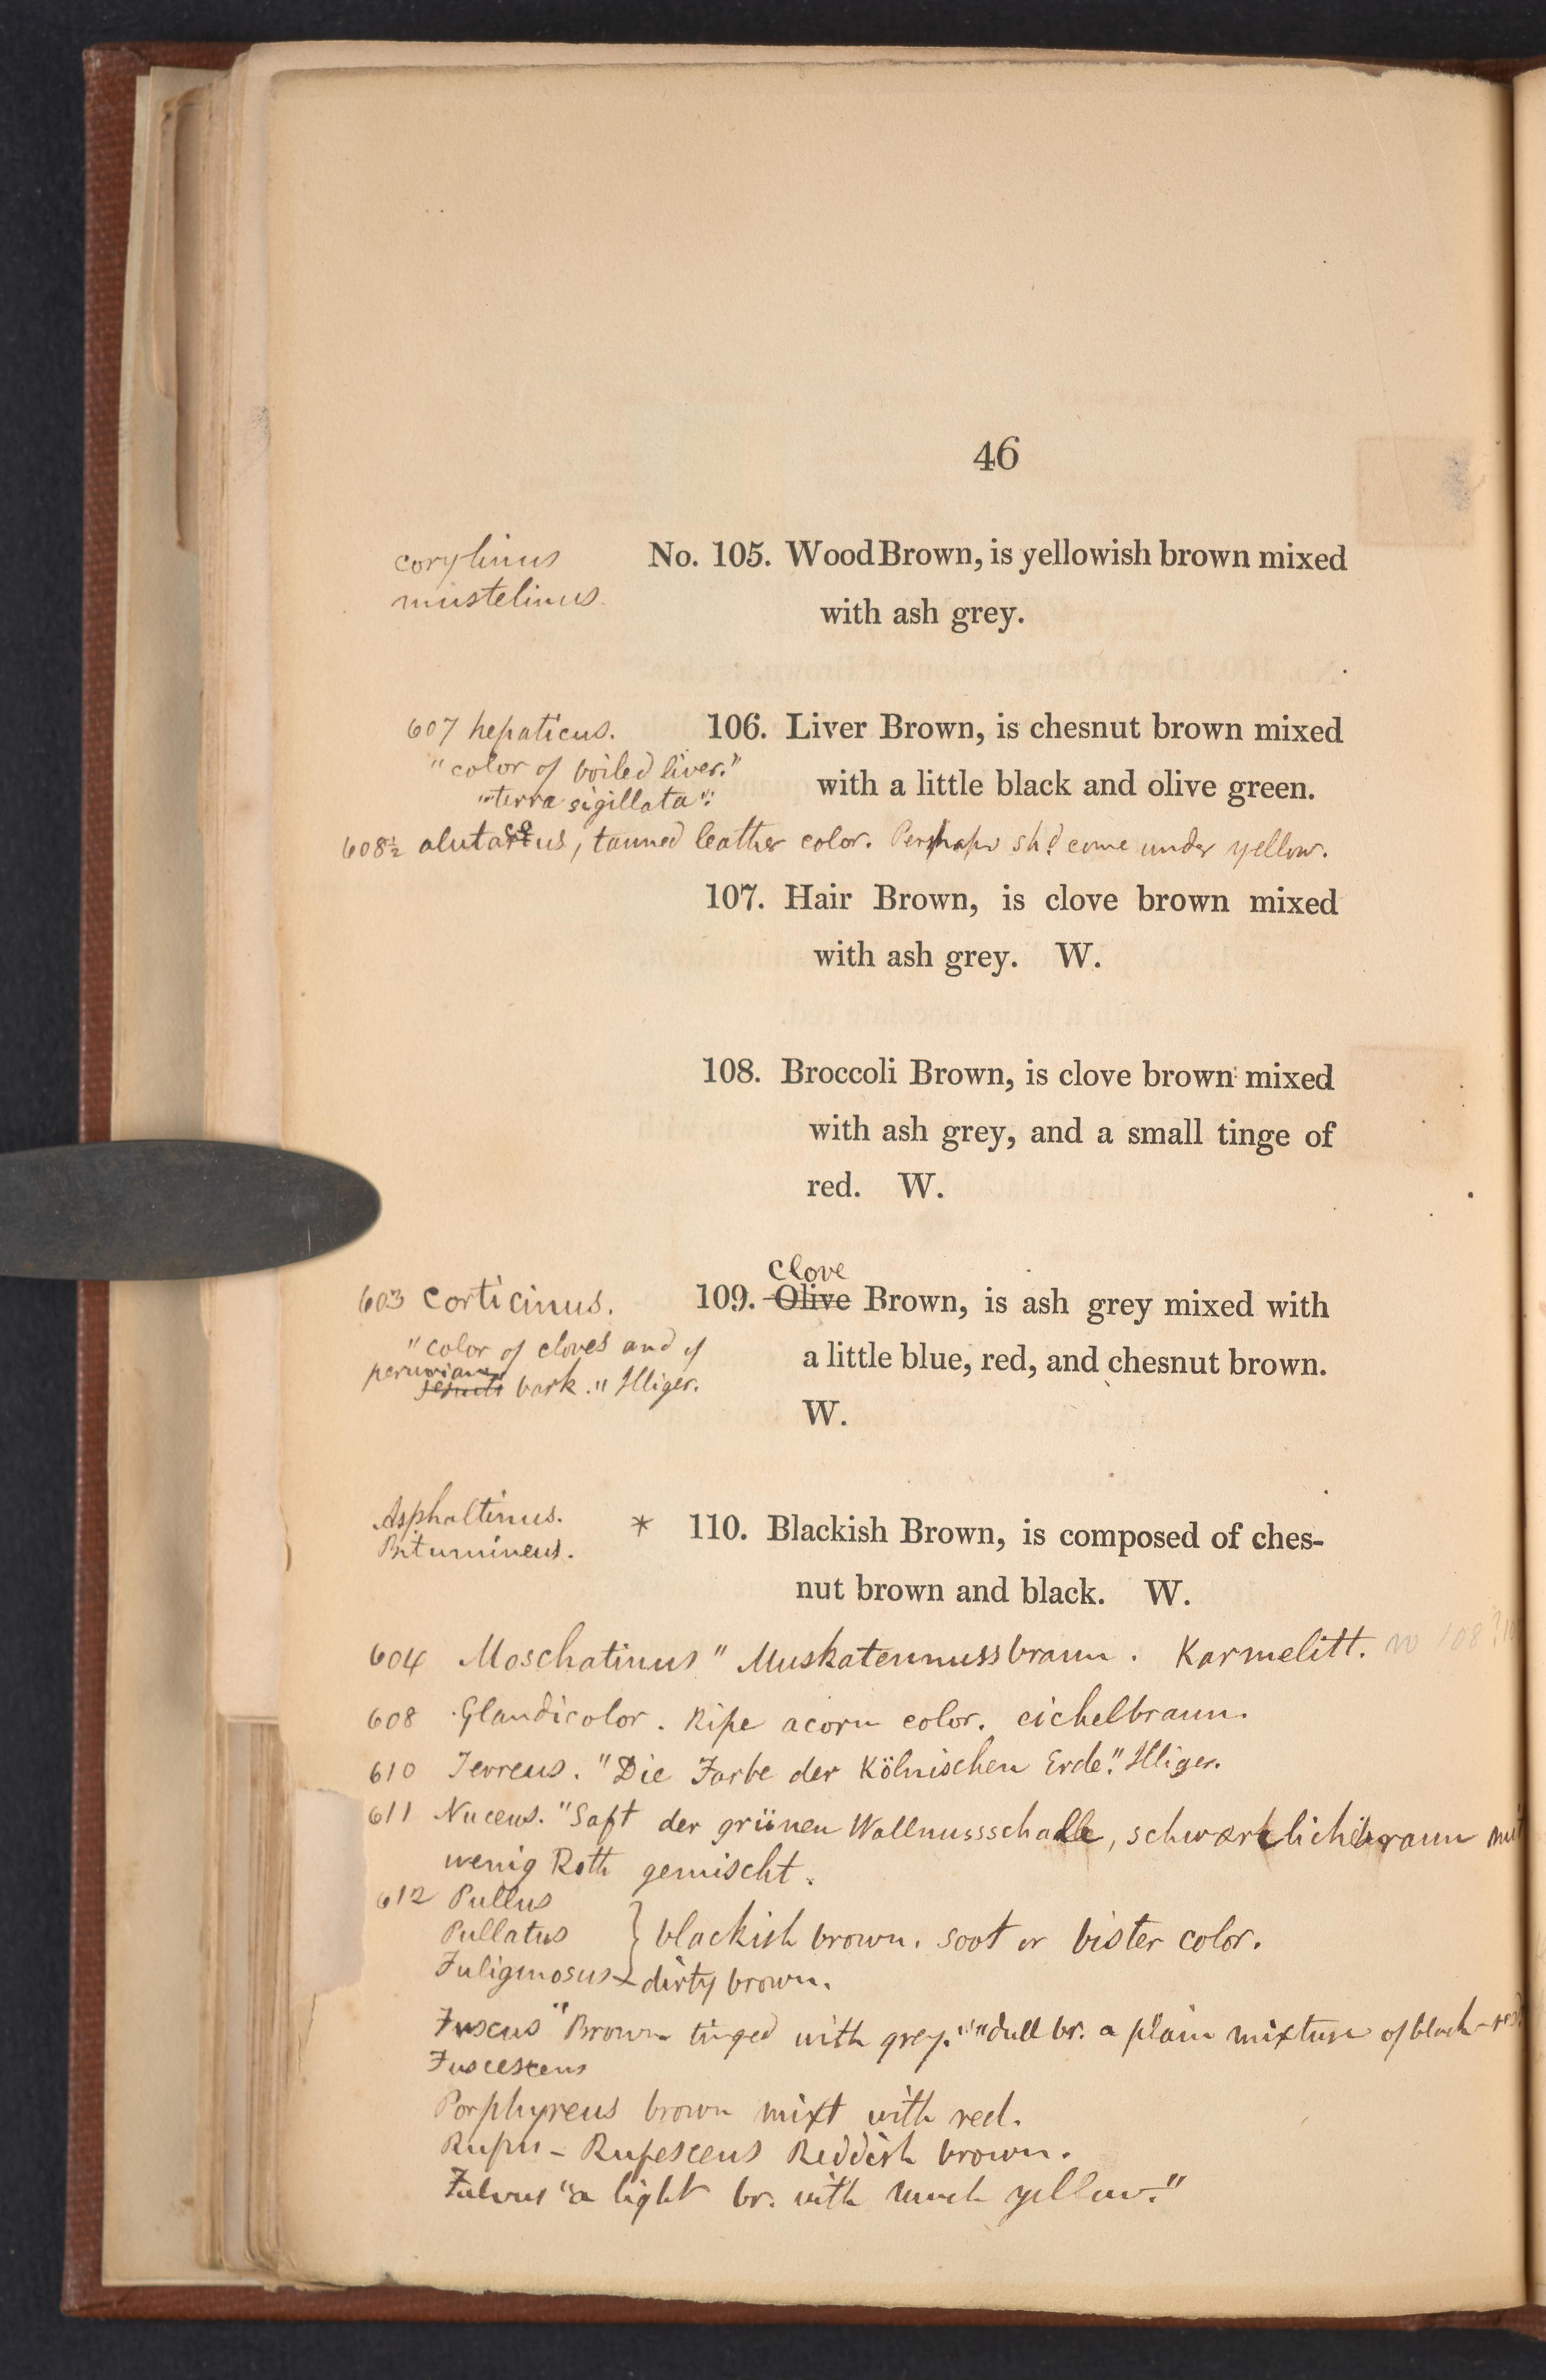 46
corylinus
mustelinus.
No. 105. Wood Brown, is yellowish brown mixed
with ash grey.
607 hepaticus.
"color of boiled liver."
"terra sigillata".
106. Liver Brown, is chesnut brown mixed
with a little black and olive green.
608½ alutaceus, tanned leather color. Perhaps shd come under yellow.
107. Hair Brown, is clove brown mixed
with ash grey. W.
108. Broccoli Brown, is clove brown mixed
with ash grey, and a small tinge of
red. W.
603 corticinus.
"color of cloves and of
peruvian
jesuits bark." Illiger.
Clove
109. Olive Brown, is ash grey mixed with
a little blue, red, and chesnut brown.
W.
Asphaltinus.
Bitumineus.
* 110. Blackish Brown, is composed of ches-
nut brown and black. W.
604 Moschatinus " Muskatennussbraun. Karmelitt.
608 Glandicolor. Ripe acorn color. eichelbraun.
610 Terreus. "Die Farbe der Kölnischen Erde." Illiger.
611 Nuceus. "Saft der grünen Wallnussschale, schwarzlichbraun mit
wenig Roth gemischt.
612 Pullus
Pullatus } blackish brown. soot or bister color.
Fuliginosus dirty brown.
Fuscus "Brown tinged with grey." "dull br. a plain mixture of black - red
Fuscescens
Porphyreus brown mixt with red.
Rufus - Rufescens Reddish brown.
Fulvus "a light br. with much yellow."